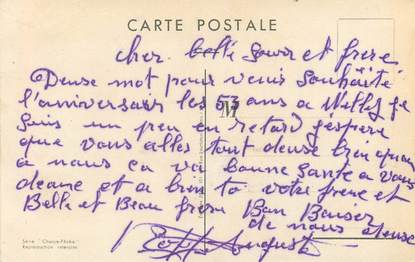 CARTE POSTALE
cher belle Soeur et frère
Deuse mot pour venir Souhaité
l'anniversair les 53 ans a Willy je
Suis un peu en retard j'éspère
que vous alles tout deuse bien quan
a nous ca va bonne Sante a vous
deuse et a bien to votre frère et
Belle et Beau frère Bon Baiser
de nous deuse
Auguste
Série "Chasse-Pêche"
Reproduction interdite
M